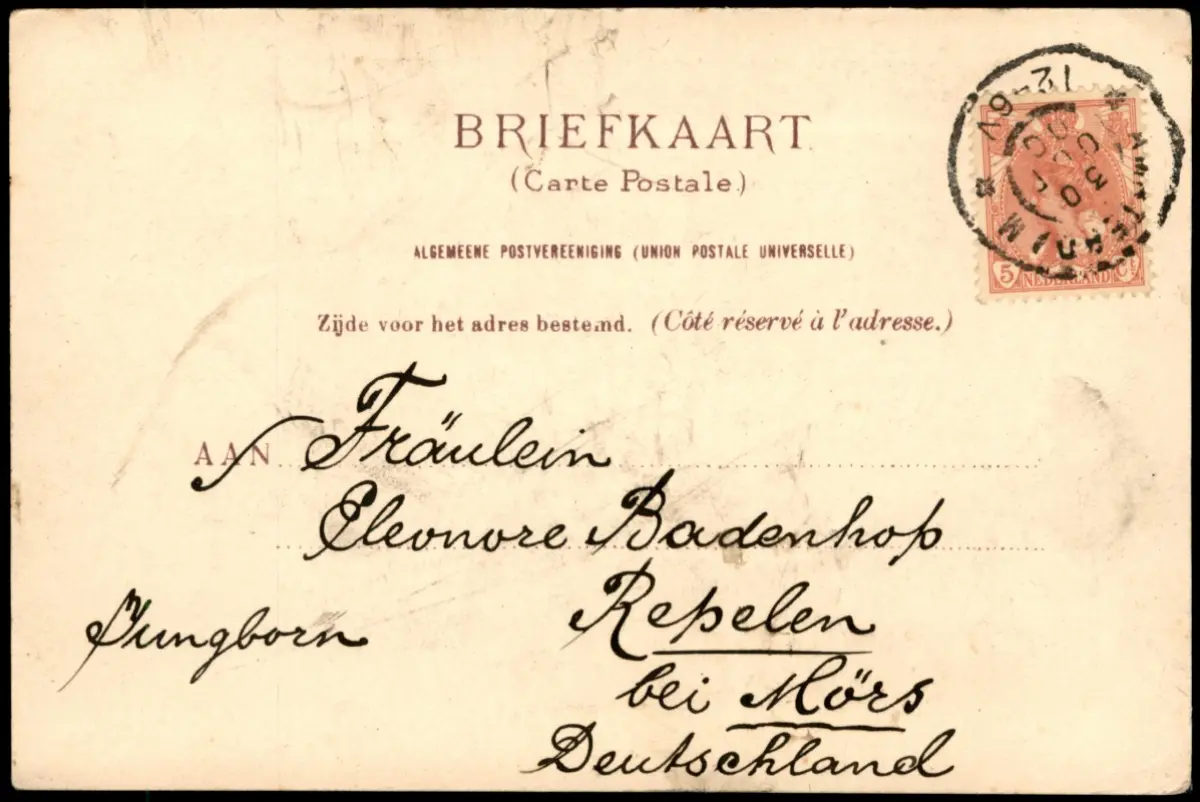 BRIEFKAART
(Carte Postale.)
ALGEMEENE POSTVEREENIGING (UNION POSTALE UNIVERSELLE)
Zijde voor het adres bestemd. (Côté réservé à l'adresse.)
AAN Fräulein
Eleonore Badenhop
Jungborn
Repelen
bei Mörs
Deutschland
5 NEDERLAND CT
12-6V